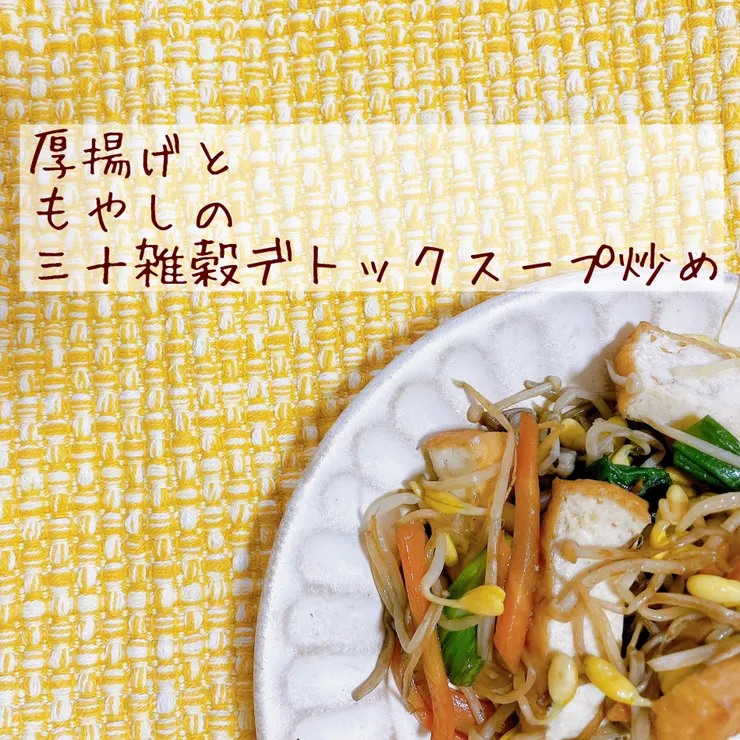 厚揚げと
もやしの
三十雑穀デトックスープ炒め